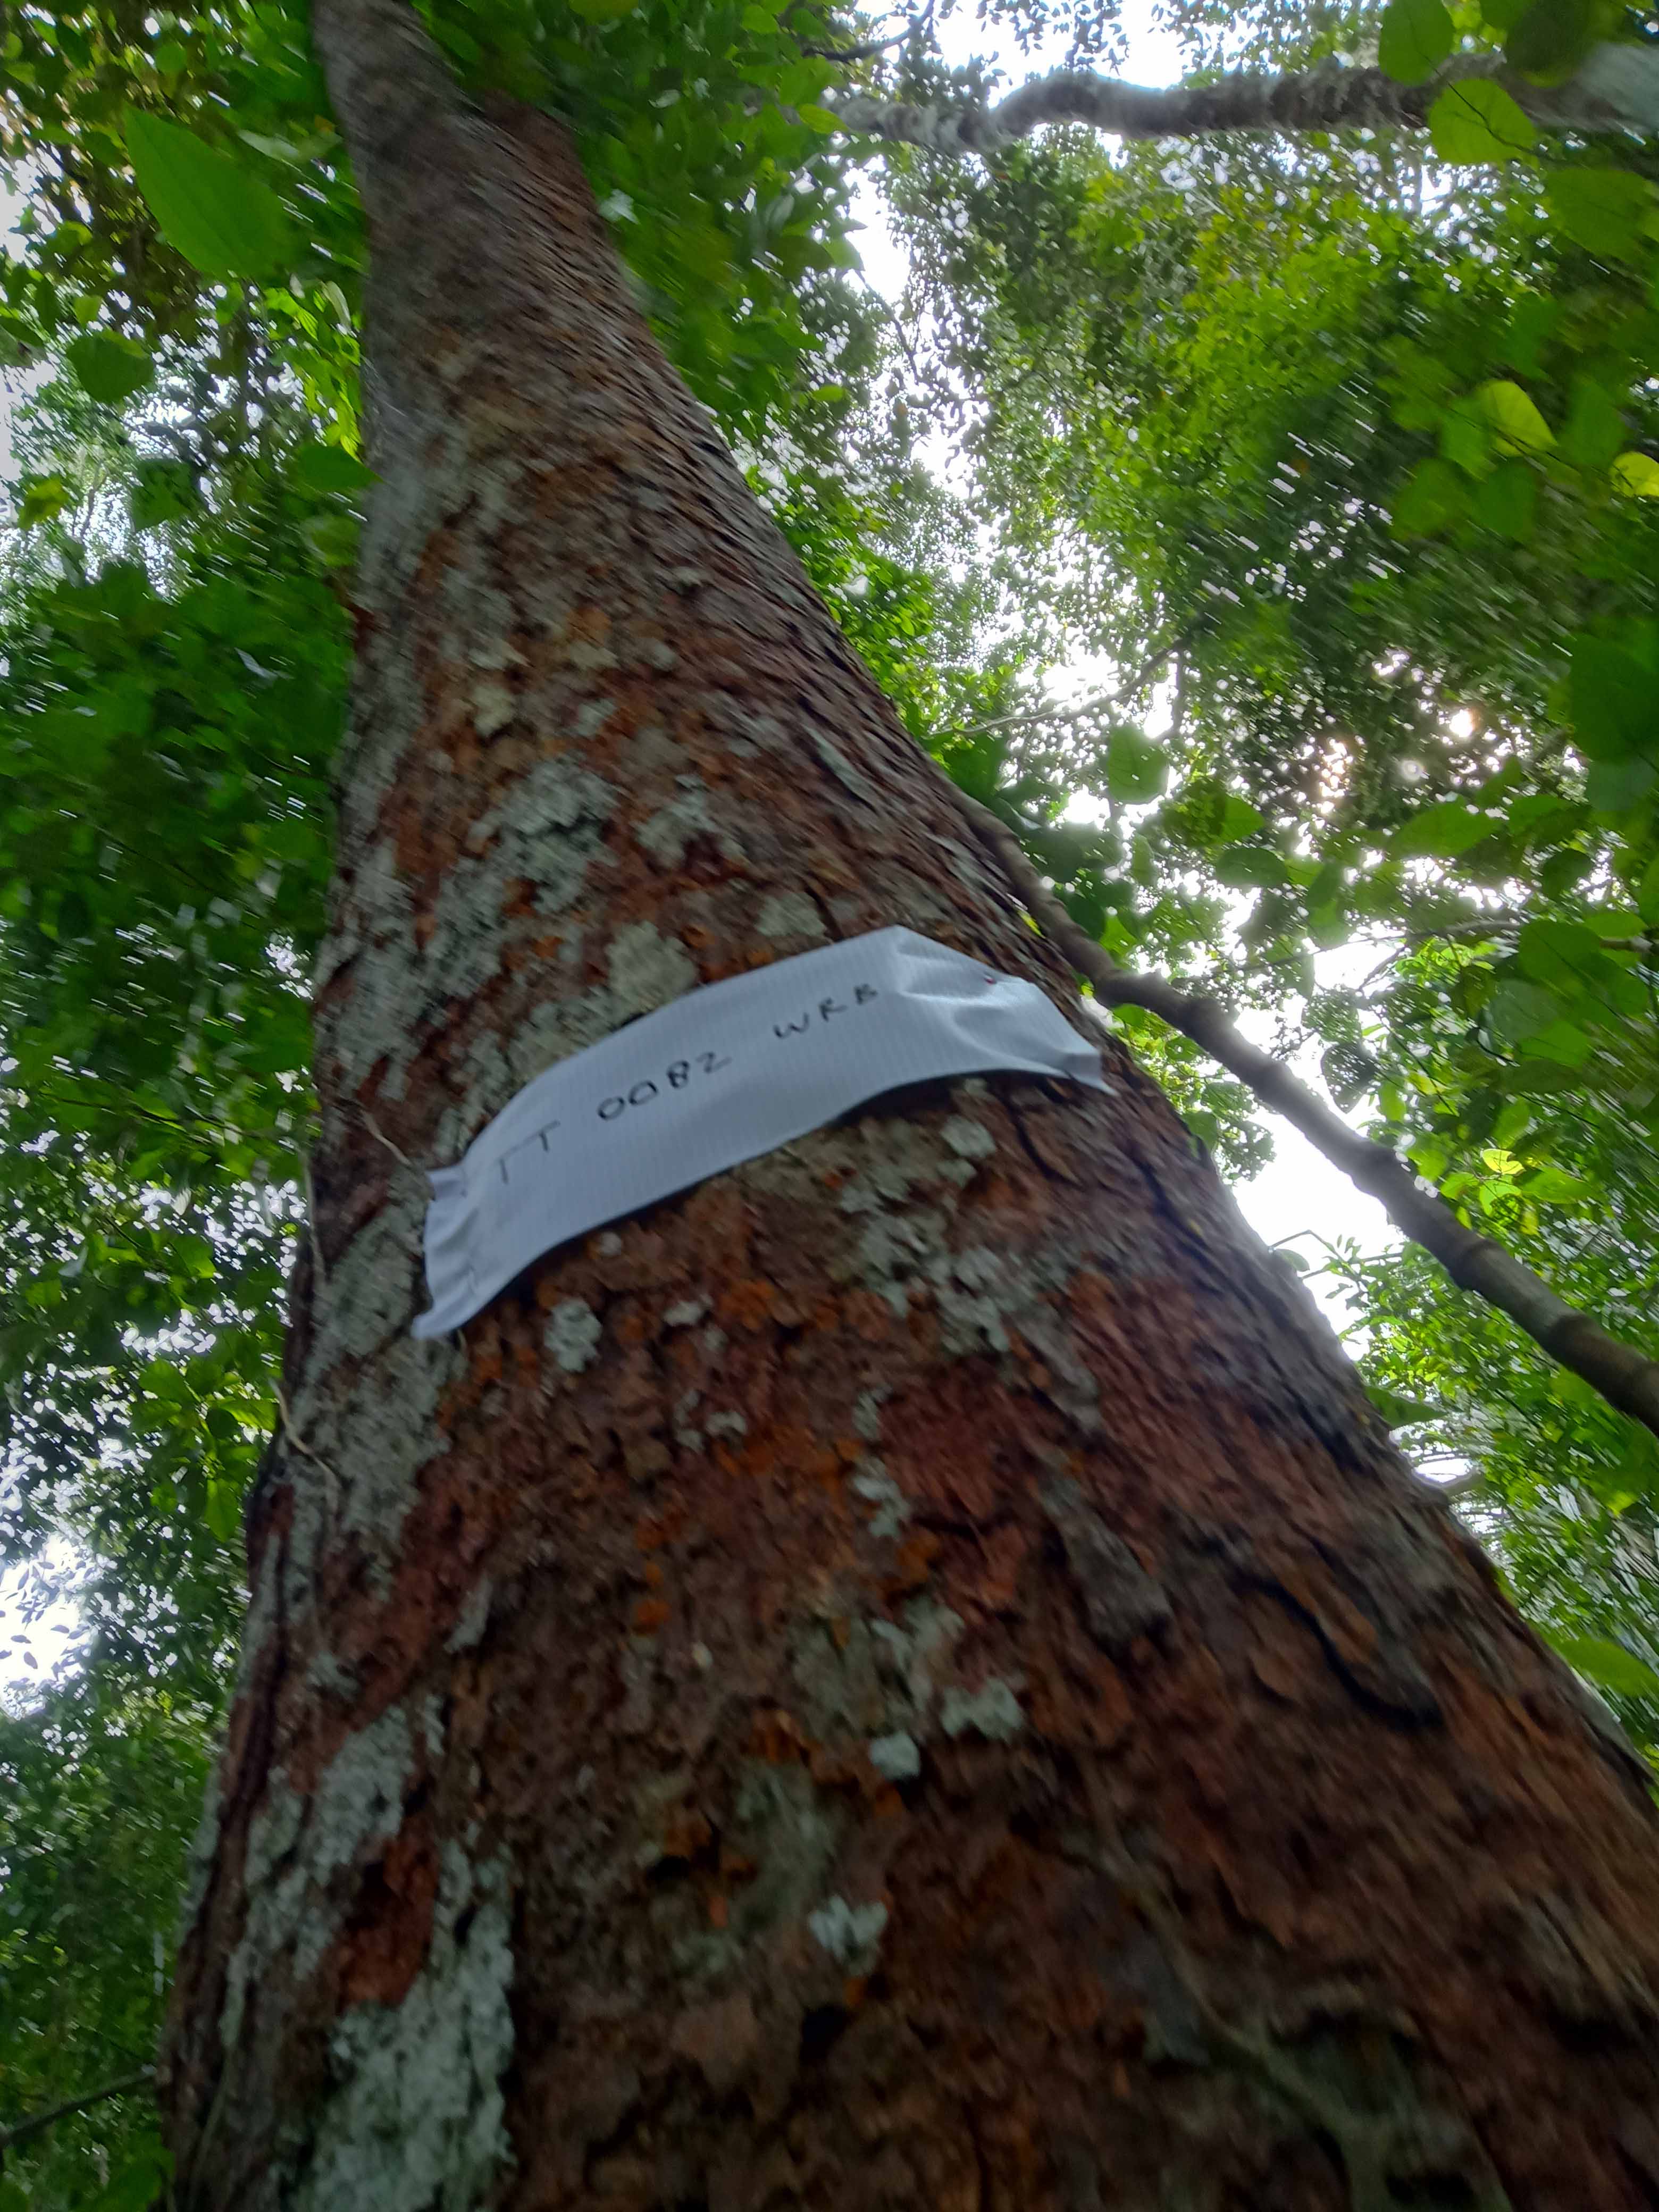 TT 0082 WRB